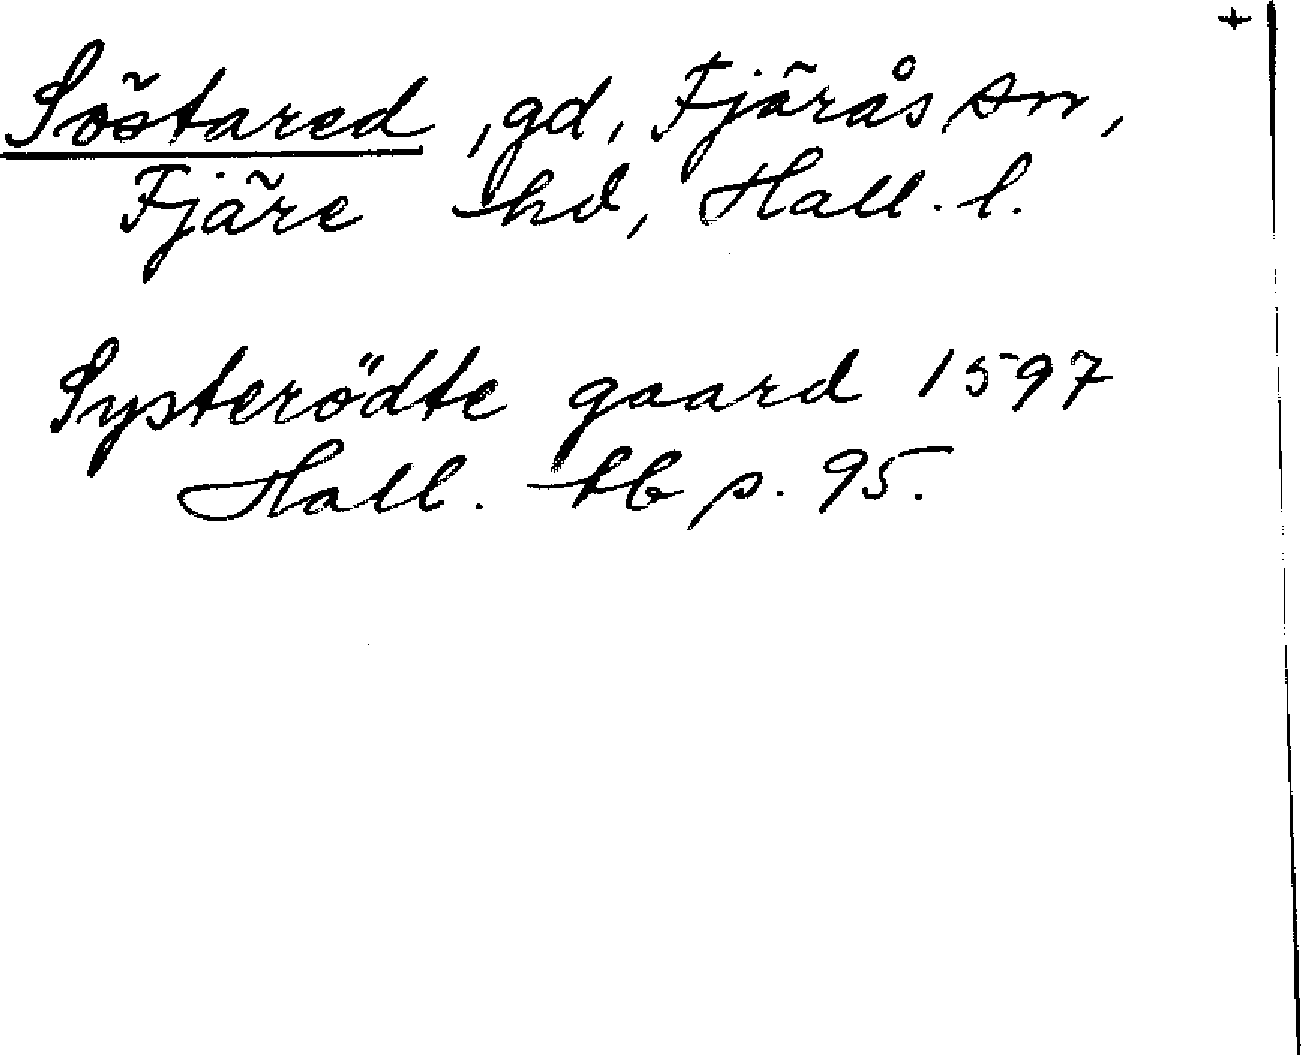 +
Söstared, gd, Fjärås sn,
Fjäre hd, Hall. l.
Systerödte gaard 1597
Hall. tb p. 95.